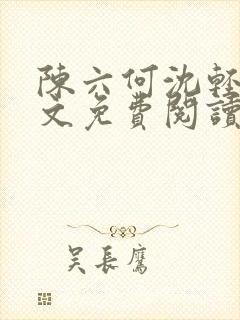 陳六何沈輕
文免費閱讀
吴長鷹